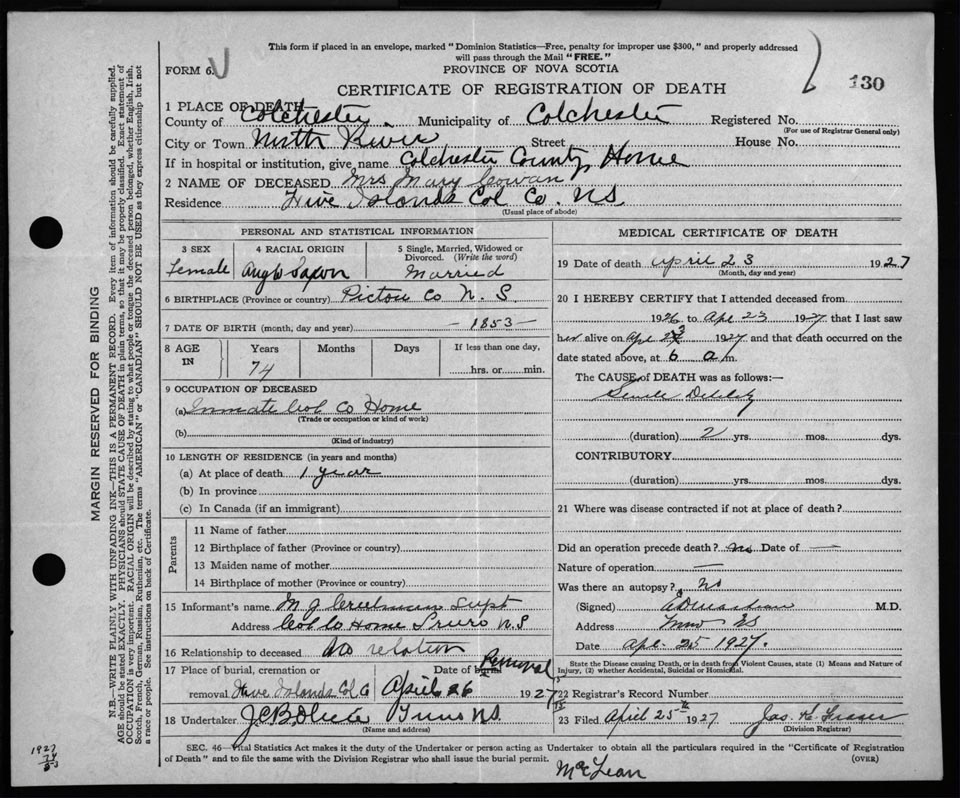 This form if placed in an envelope, marked "Dominion Statistics—Free, penalty for improper use $300," and properly addressed
will pass through the Mail "FREE."
FORM 6.
PROVINCE OF NOVA SCOTIA
130
CERTIFICATE OF REGISTRATION OF DEATH
1 PLACE OF DEATH
County of Colchester. Municipality of Colchester Registered No.
(For use of Registrar General only)
City or Town North River Street House No.
If in hospital or institution, give name Colchester County Home
2 NAME OF DECEASED Mrs Mary Cowan
Residence Five Islands Col Co. NS
(Usual place of abode)
PERSONAL AND STATISTICAL INFORMATION
3 SEX 4 RACIAL ORIGIN 5 Single, Married, Widowed or Divorced. (Write the word)
Female Anglo Saxon Married
6 BIRTHPLACE (Province or country) Pictou Co N. S.
7 DATE OF BIRTH (month, day and year) —1853—
8 AGE IN Years Months Days If less than one day,
74 hrs. or min.
9 OCCUPATION OF DECEASED
(a) Inmate Col Co Home
(Trade or occupation or kind of work)
(b)
(Kind of industry)
10 LENGTH OF RESIDENCE (in years and months)
(a) At place of death 1 year
(b) In province
(c) In Canada (if an immigrant)
Parents
11 Name of father
12 Birthplace of father (Province or country)
13 Maiden name of mother
14 Birthplace of mother (Province or country)
15 Informant's name M J Creelman Supt
Address Col Co Home Truro N.S
16 Relationship to deceased No relation
17 Place of burial, cremation or Date of burial Removal
removal Five Islands Col Co April 26 1927
18 Undertaker Truro NS.
(Name and address)
MEDICAL CERTIFICATE OF DEATH
19 Date of death April 23 1927
(Month, day and year)
20 I HEREBY CERTIFY that I attended deceased from
1926 to Apr 23 1927 that I last saw
her alive on Apr 23 1927 and that death occurred on the
date stated above, at 6 a m.
The CAUSE of DEATH was as follows:—
Senile Debility
(duration) 2 yrs. mos. dys.
CONTRIBUTORY
(duration) yrs. mos. dys.
21 Where was disease contracted if not at place of death?
Did an operation precede death? no Date of —
Nature of operation —
Was there an autopsy? no
(Signed) M.D.
Address Truro NS
Date Apr. 25 1927.
State the Disease causing Death, or in death from Violent Causes, state (1) Means and Nature of
Injury, (2) whether Accidental, Suicidal or Homicidal.
22 Registrar's Record Number
23 Filed April 25 1927 Jas. K. Fraser
(Division Registrar)
SEC. 46—Vital Statistics Act makes it the duty of the Undertaker or person acting as Undertaker to obtain all the particulars required in the "Certificate of Registration
of Death" and to file the same with the Division Registrar who shall issue the burial permit. (OVER)
McLean
MARGIN RESERVED FOR BINDING
N.B.—WRITE PLAINLY WITH UNFADING INK—THIS IS A PERMANENT RECORD. Every item of information should be carefully supplied.
AGE should be stated EXACTLY. PHYSICIANS should STATE CAUSE OF DEATH in plain terms, so that it may be properly classified. Exact statement of
OCCUPATION is very important. RACIAL ORIGIN will be described by stating to what people or tongue the deceased person belonged, whether English, Irish,
Scotch, French, German, Russian, Ruthenian, etc. The terms "AMERICAN" or "CANADIAN" SHOULD NOT BE USED as they express citizenship but not
a race or people. See instructions on back of Certificate.
1927
74